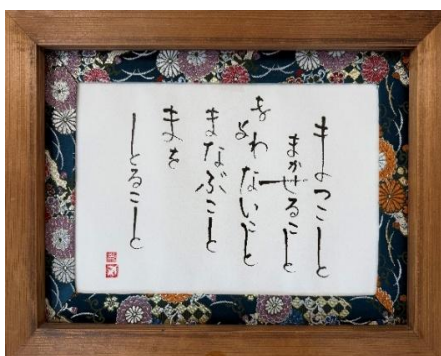 まよつこと
まかせること
きめわないこと
まなぶこと
まを
とること